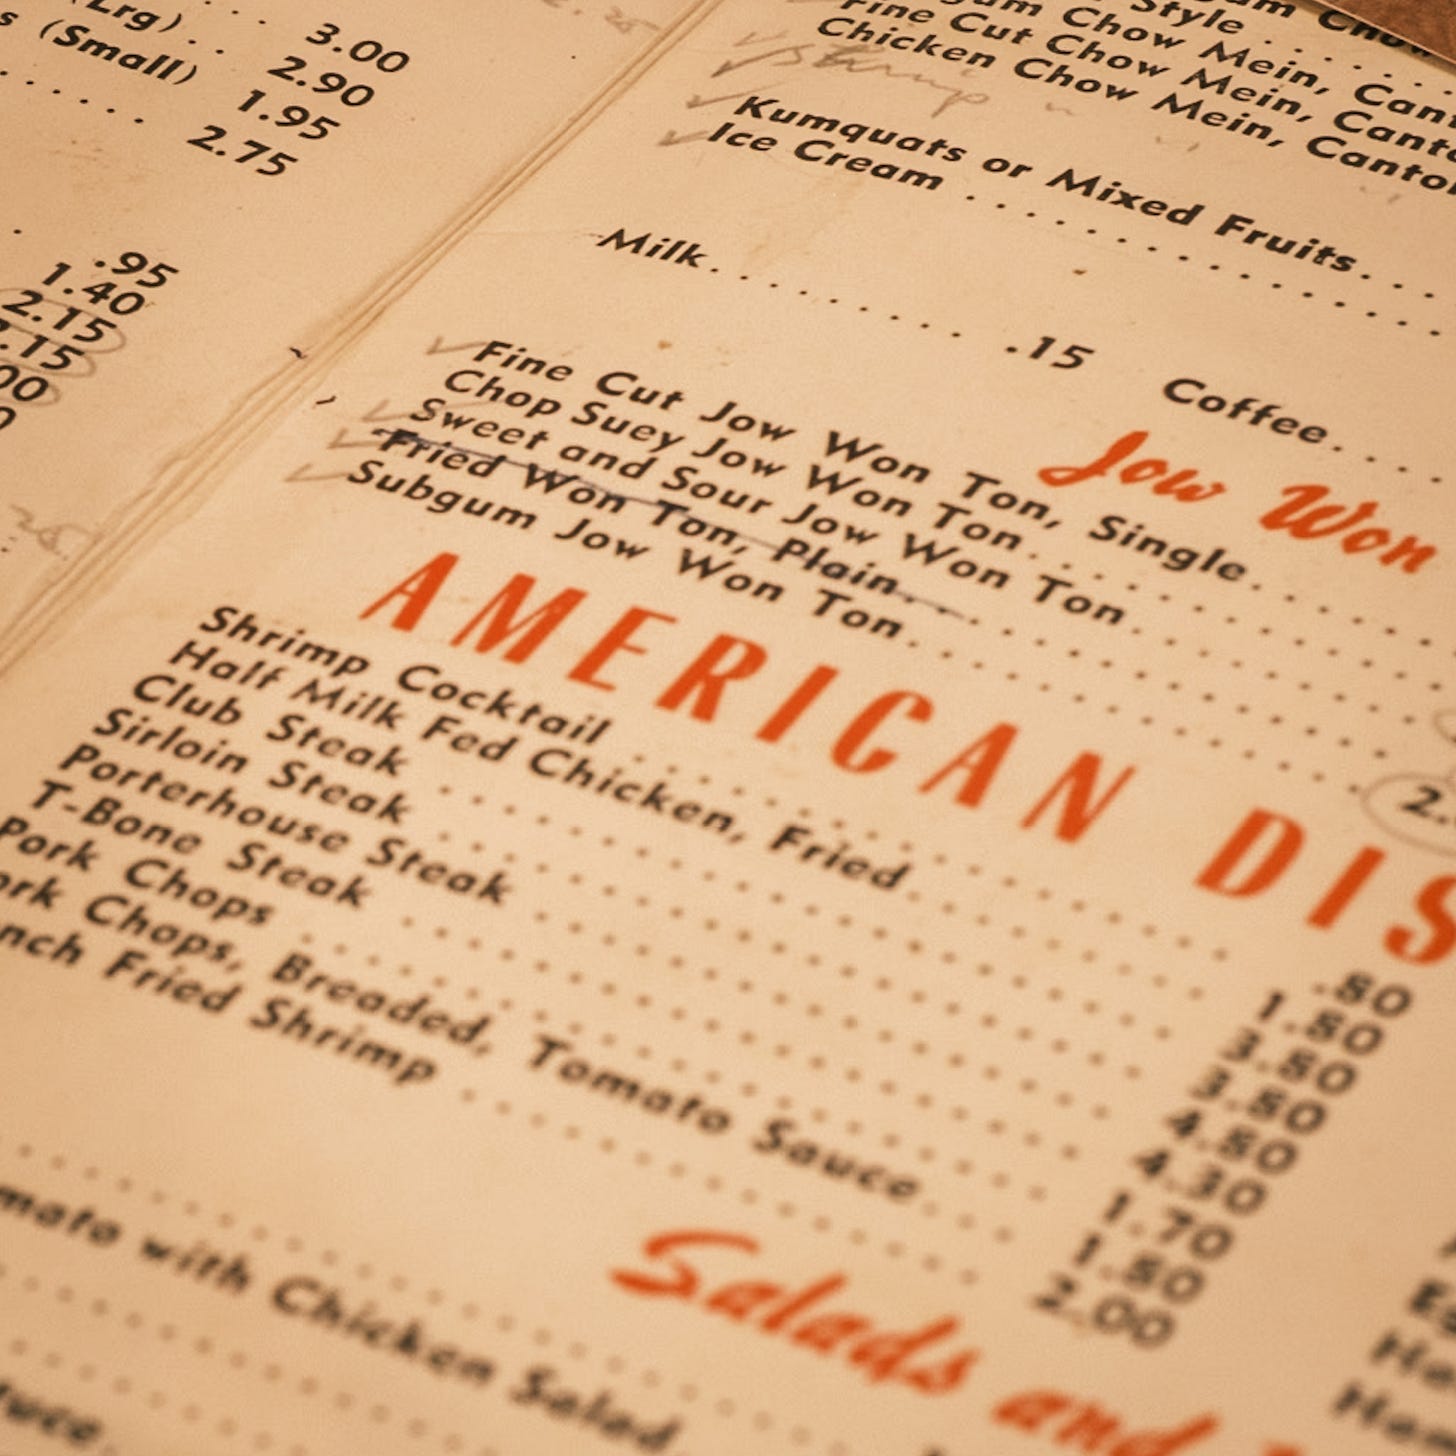 (Lrg) . . 3.00
s (Small) 2.90
1.95
. . . . . . 2.75
.95
1.40
2.15
.15
00
0
Style . . . . . .
um Chow Mein, Cant
Fine Cut Chow Mein, Canto
Chicken Chow Mein, Canto
Kumquats or Mixed Fruits. . . .
Ice Cream . . . . . . . . . . . .
Milk. . . . . . . . . .15 Coffee. . . . .
Jow Won
Fine Cut Jow Won Ton, Single. . . . . .
Chop Suey Jow Won Ton. . . . . . . . .
Sweet and Sour Jow Won Ton. . . . . . .
Fried Won Ton, Plain. . . . . . . . . .
Subgum Jow Won Ton. . . . . . . . . . . 2.
AMERICAN DIS
Shrimp Cocktail . . . . . . . . . . . . .80
Half Milk Fed Chicken, Fried . . . . . . 1.80
Club Steak . . . . . . . . . . . . . . . 3.50
Sirloin Steak . . . . . . . . . . . . . . 3.80
Porterhouse Steak . . . . . . . . . . . . 4.80
T-Bone Steak . . . . . . . . . . . . . . 4.30
Pork Chops . . . . . . . . . . . . . . . 1.70
ork Chops, Breaded, Tomato Sauce. . . . 1.80
nch Fried Shrimp . . . . . . . . . . . . 2.00
Salads and
mato with Chicken Salad
tuce.